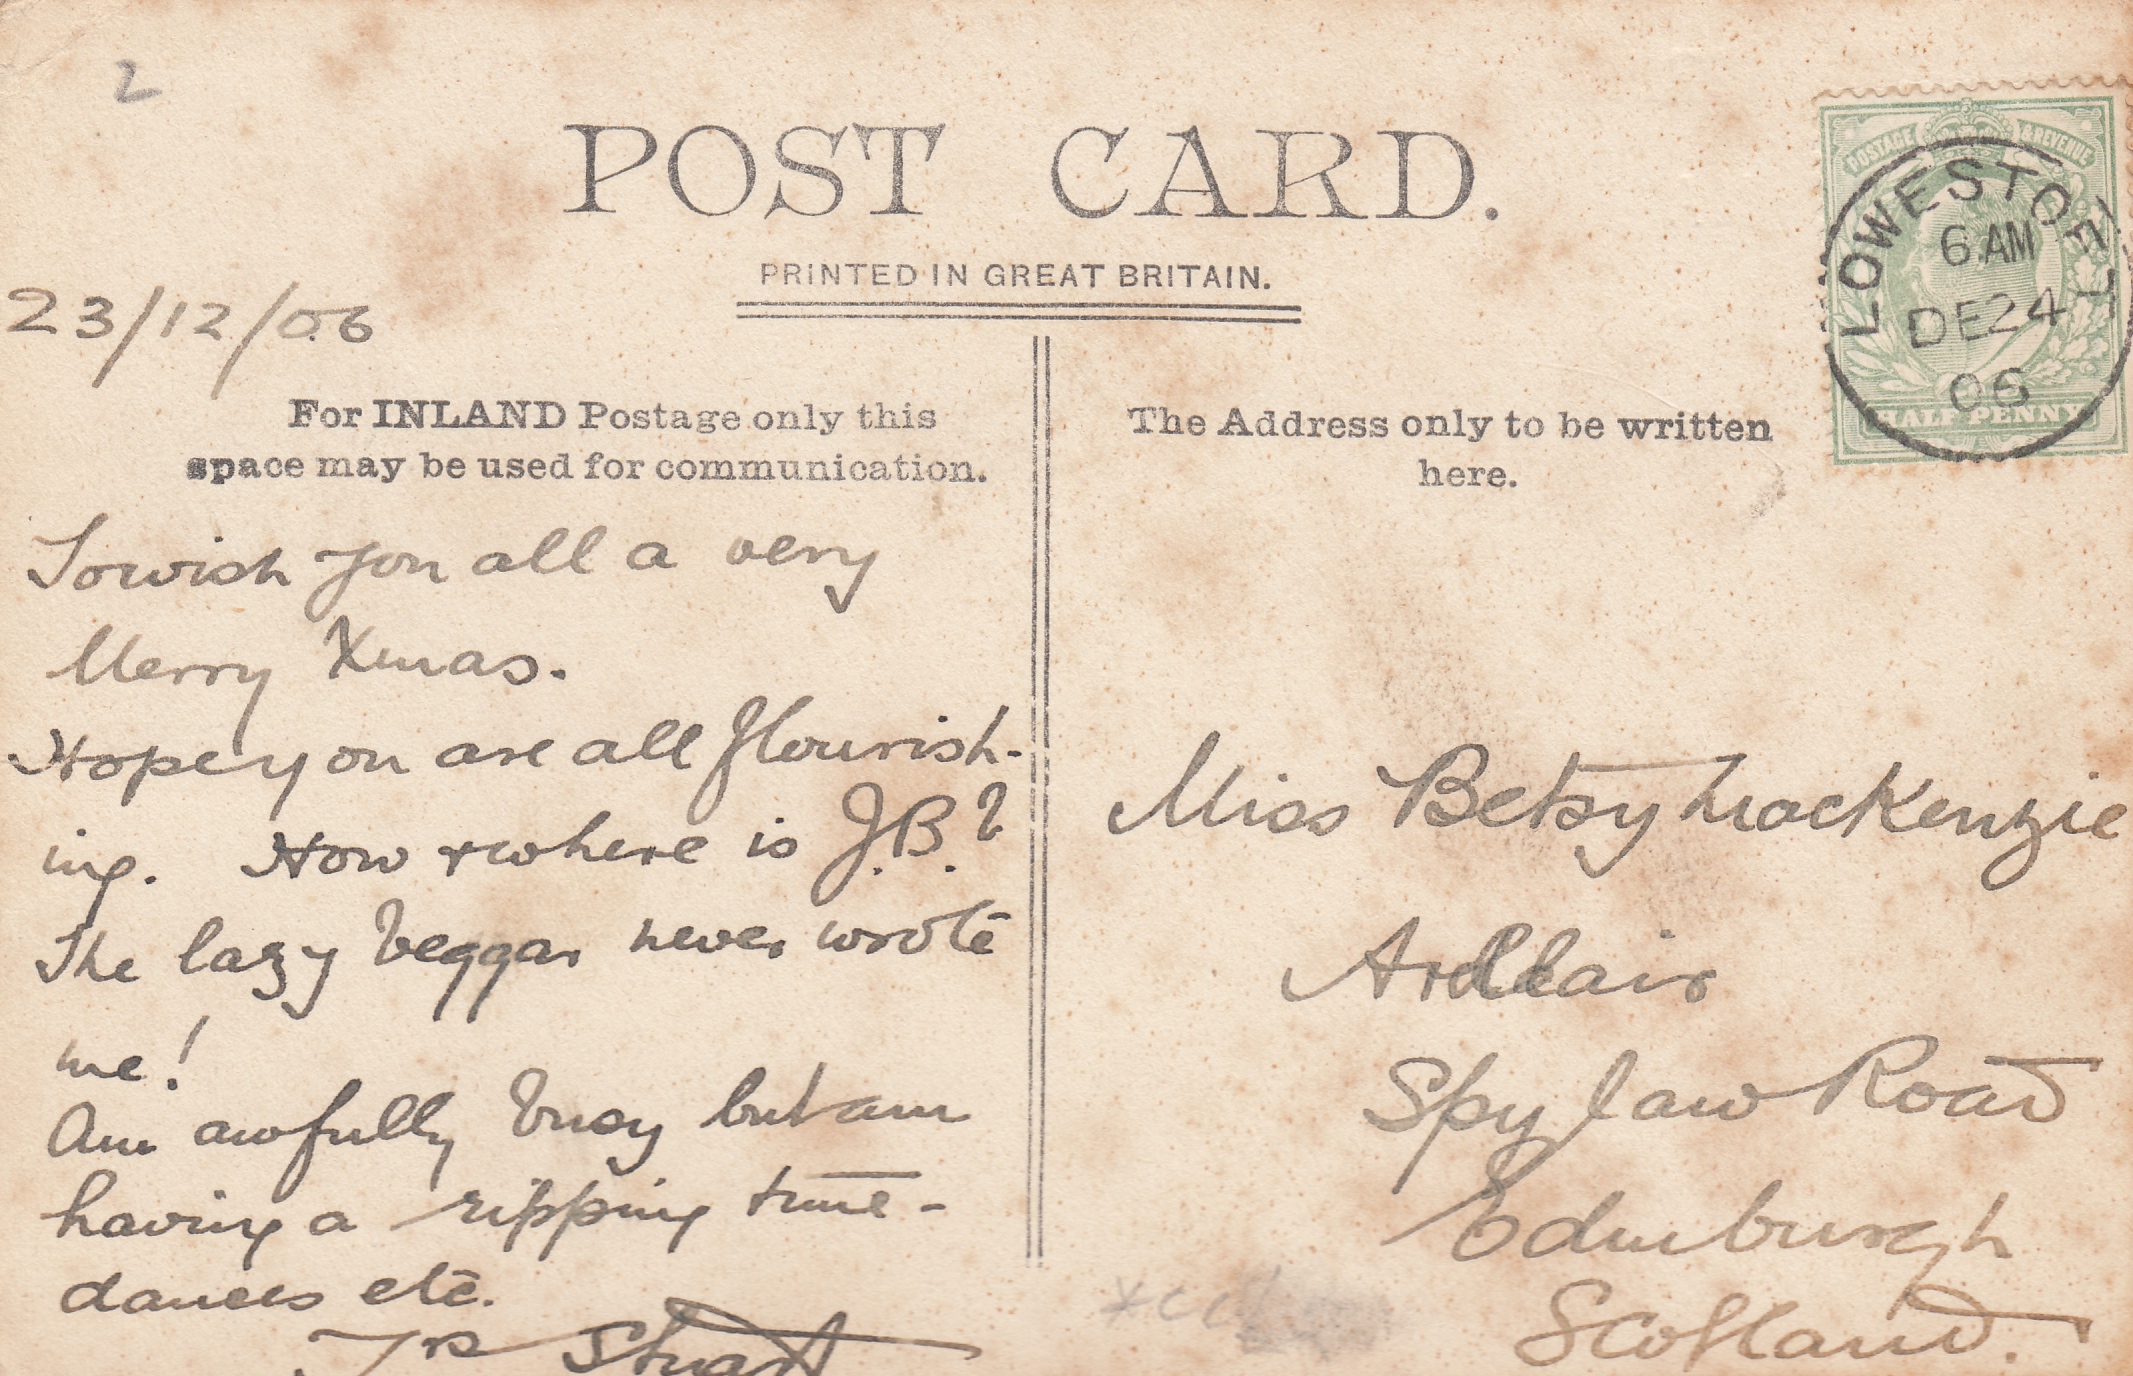 2
POST CARD.
PRINTED IN GREAT BRITAIN.
23/12/06
For INLAND Postage only this
space may be used for communication.
To wish you all a very
Merry Xmas.
Hope you are all flourish-
ing. How & where is J.B.?
The lazy beggar never wrote
me!
Am awfully busy but am
having a ripping time -
dances etc.
Yrs Stuart
The Address only to be written
here.
Miss Betsy Mackenzie
Ardblair
Spylaw Road
Edinburgh
Scotland.
POSTAGE & REVENUE
HALFPENNY
LOWESTOFT
6 AM
DE 24
06